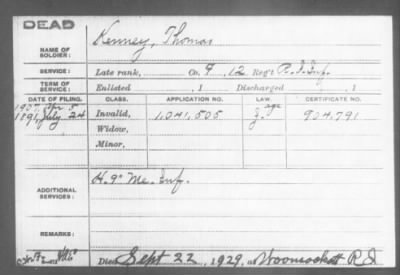 DEAD
NAME OF SOLDIER: Kenney, Thomas
SERVICE: Late rank, Co. G, 12 Reg't R.I. Inf.
TERM OF SERVICE: Enlisted , 1 Discharged , 1
DATE OF FILING. CLASS. APPLICATION NO. LAW. CERTIFICATE NO.
1907
1891, July 24 Invalid, 1,041,505 age 904,791
Widow,
Minor,
ADDITIONAL SERVICES: H. 9" Me. Inf.
REMARKS:
Died Sept 22, 1929, at Woonsockett R.I.